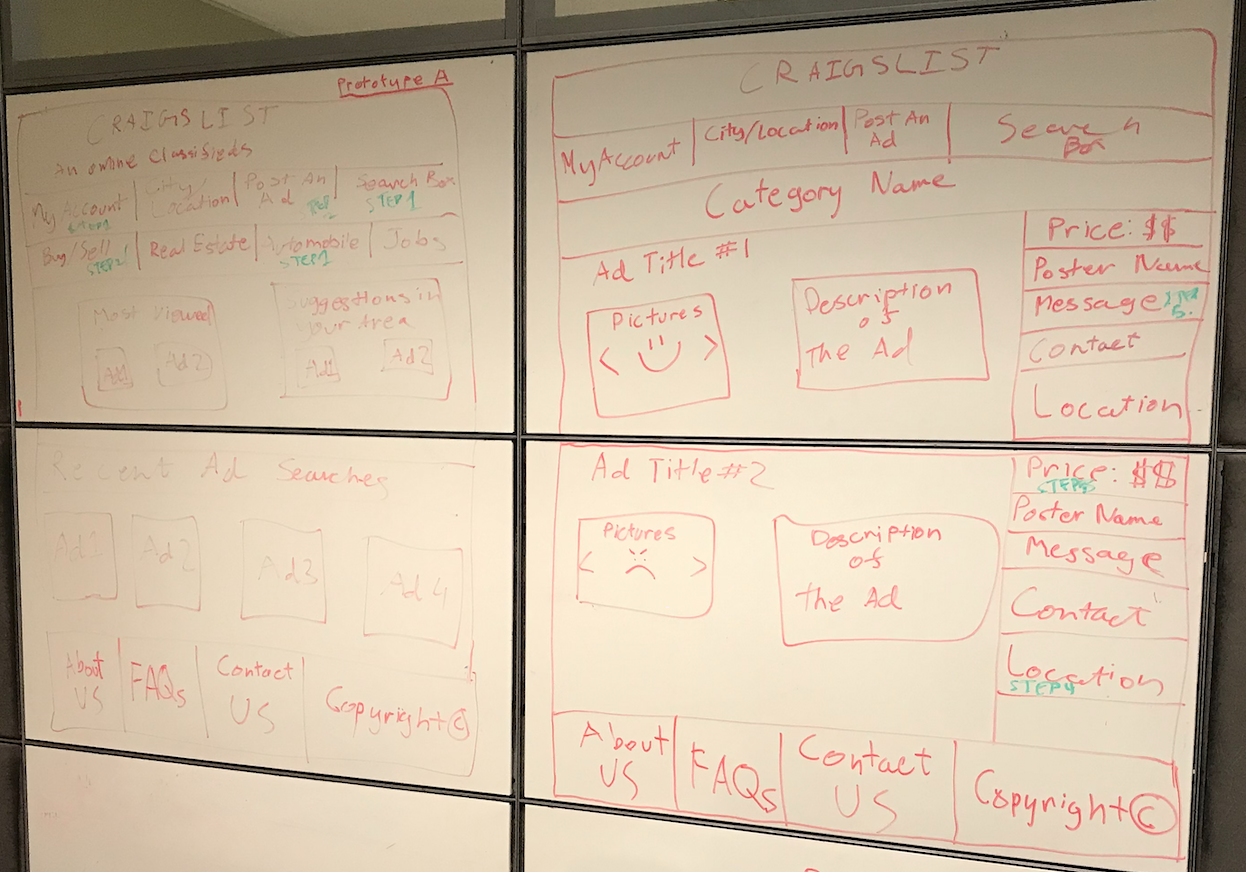 Prototype A
CRAIGSLIST
An online Classifieds
My Account
STEP1
City/
Location
Post An
Ad
Search Box
STEP 1
Buy/Sell
STEP2
Real Estate
Automobile
STEP1
Jobs
Most Viewed
Ad1
Ad2
Suggestions in
your Area
Ad1
Ad2
Recent Ad Searches
Ad1
Ad2
Ad3
Ad4
About
US
FAQs
Contact
US
Copyright ©
CRAIGSLIST
My Account
City/Location
Post An
Ad
Search
Box
Category Name
Ad Title #1
Pictures
< >
Description
of
The Ad
Price: $$
Poster Name
Message
Contact
Location
Ad Title #2
Pictures
< >
Description
of
the Ad
Price: $$
Poster Name
Message
Contact
Location
STEP4
About
US
FAQs
Contact
US
Copyright ©